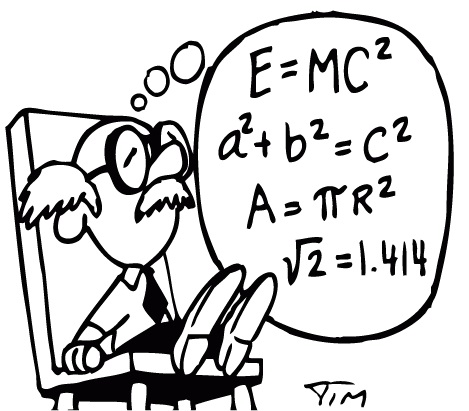 E=MC²
a²+b²=C²
A=πR²
√2=1.414
TIM